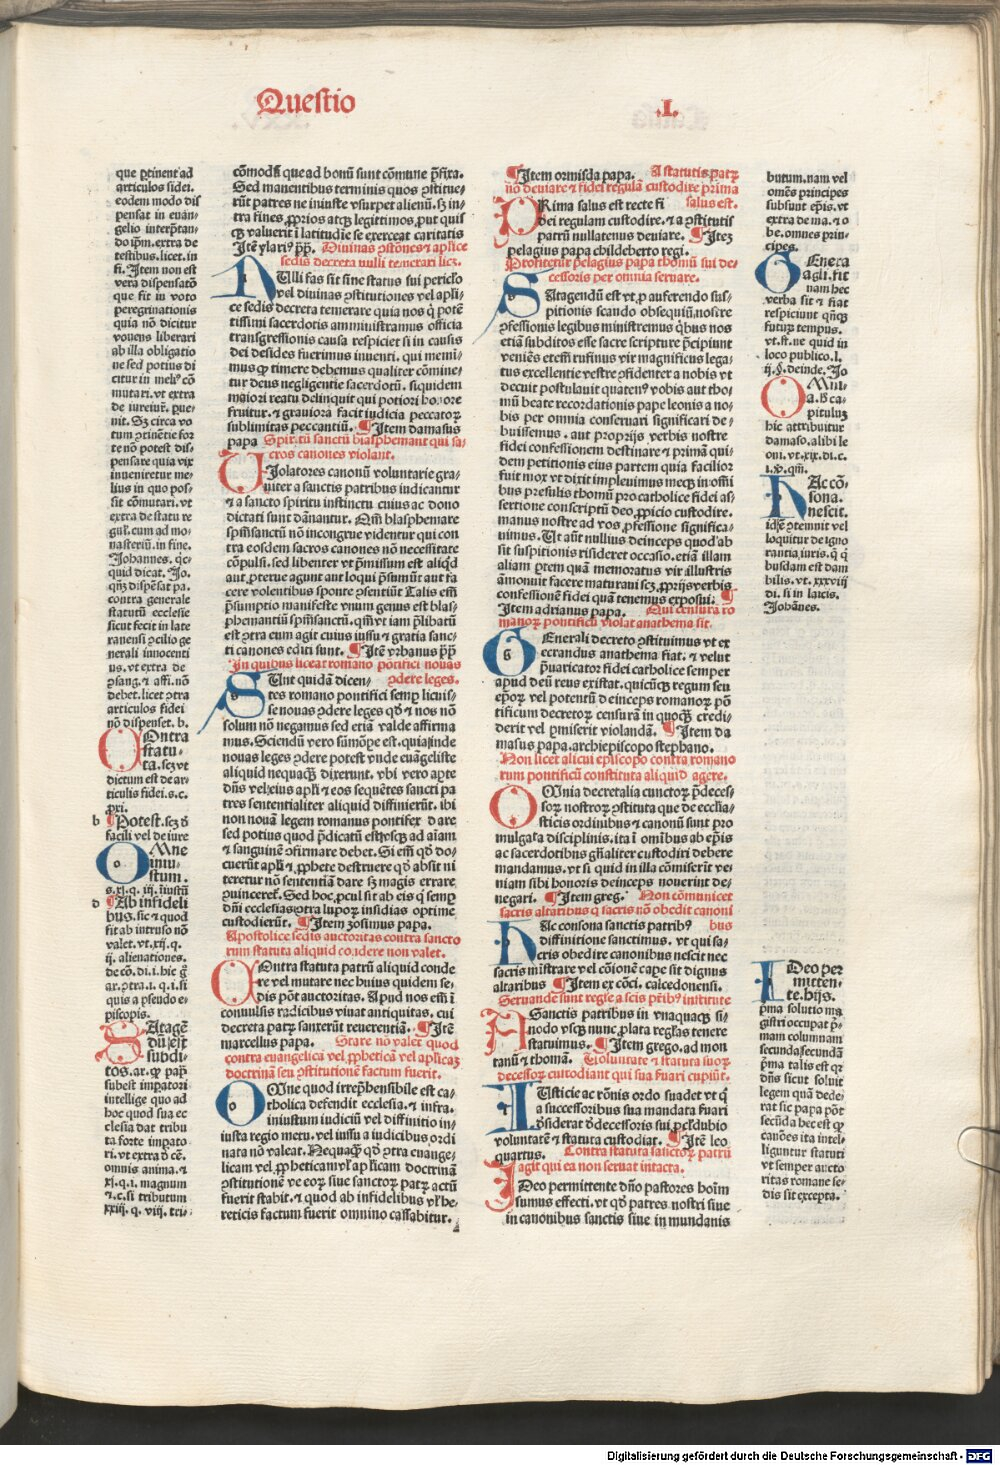 Questio
.I.
que ꝑtinent ad
articulos fidei.
eodem modo dis
pensat in euan-
gelio interp̃tan-
do ip̃m. extra de
testibus. licet. in
fi. Item non est
vera dispensatō
que fit in voto
peregrinationis
quia nō dicitur
vouens liberari
ab illa obligatio
ne sed potius di
citur in meliꝰ cō
mutari. vt extra
de iureiur̃. que-
nit. Sz circa vo
tum ꝯtinētie for
te nō potest dis-
pensare quia vix
inueniretur me-
lius in quo pos-
sit cōmutari. vt
extra de statu re
gul. cum ad mo-
nasteriū. in fine.
Johannes. qc̄-
quid dicat. Jo.
qm̄ dispēsat pa.
contra generale
statutū ecclesie
sicut fecit in late
ranensi ꝯcilio ge
nerali innocenti
us. vt extra de
ꝯsang. ⁊ affi. nō
debet. licet ꝯtra
articulos fidei
nō dispenset. b.
Ontra
statu-
ta. sez vt
dictum est de ar-
ticulis fidei. s. c.
ꝓxi.
b ¶ Potest. sez
facili vel de iure
Mne
iniu-
stum.
s. xi. q. iij. iniustū
d ¶ Ab infideli
bus. sic ⁊ quod
fit ab intruso nō
valet. vt. xij. q.
ij. alienationes.
de cō. di. i. hic
ar. ꝯtra. i. q. i. si
quis a pseudo e-
piscopis.
Atagē
dū est
subdi-
tos. ar. ꝙ pap̄
subest imꝑatori
intellige quo ad
hoc quod sua ec
clesia dat tribu
ta forte imꝑato
ri. vt extra đ cē.
omnis anima. ⁊
xi. q. i. magnum
⁊ c. si tributum
xxiij. q. viij. tri-
cōmodꝭ que ad bonū sunt cōmune p̄fixa.
Sed manentibus terminis quos ꝯstitue-
rūt patres ne iniuste vsurpet alienū. sz in-
tra fines ꝓprios atqꝫ legittimos put quis
qꝫ valuerit ī latitudīe se exerceat caritatis
Itē ylariꝰ p̄p̄. Diuinas ꝯstōnes ⁊ aplice
sedis decreta nulli temerari licz.
Ulli fas sit sine status sui periclo
vel diuinas ꝯstitutiones vel apli-
ce sedis decreta temerare quia nos q potē
tissimi sacerdotis amministramus officia
transgressionis causa respiciet si in causis
dei desides fuerimus inuenti. qui memi-
mus ꝙ timere debemus qualiter cōmine-
tur deus negligentie sacerdotū. siquidem
maiori reatu delinquit qui potiori honore
fruitur. ⁊ grauiora facit iudicia peccatoꝝ
sublimitas peccantiū. ¶ Item damasus
papa Spiritū sanctū blasphemant qui sa-
cros canones violant.
Iolatores canonū voluntarie gra-
uiter a sanctis patribus iudicantur
⁊ a sancto spiritu instinctu cuius ac dono
dictati sunt dānantur. Qm̄ blasphemare
spm̄sanctū nō incongrue videntur qui con
tra eosdem sacros canones nō necessitate
cōpulsi. sed libenter vt p̄missum est aliqd
aut ꝓterue agunt aut loqui p̄sumūt aut fa
cere volentibus sponte ꝯsentiūt Talis em̄
p̄sumptio manifeste vnum genus est blas-
phemantiū spm̄sanctū. qm̄ vt iam p̄libatū
est ꝯtra eum agit cuius iussu ⁊ gratia sanc-
ti canones editi sunt. ¶ Itē vrbanus p̄p̄
In quibus liceat romano pōtifici nouas
ꝯdere leges.
Unt quidā dicen-
tes romano pontifici semꝑ licuis-
se nouas ꝯdere leges qđ ⁊ nos nō
solum nō negamus sed etiā valde affirma
mus. Sciendū vero summope est. quia inde
nouas leges ꝯdere potest vnde euāgeliste
aliquid nequaqꝫ dixerunt. vbi vero apte
dn̄s vel eius apli ⁊ eos seqūetes sancti pa
tres sententialiter aliquid diffinierūt. ibi
non nouā legem romanus pontifex dare
sed potius quod p̄dicatū est vsqꝫ ad aīam
⁊ sanguinē ꝯfirmare debet. Si em̄ qđ do-
cuerūt apli ⁊ ꝓphete destruere qđ absit ni
teretur nō sententiā dare sz magis errare
ꝯuinceret̄. Sed hoc ꝓcul sit ab eis q semꝑ
dn̄i ecclesias ꝯtra lupoꝝ insidias optime
custodierūt. ¶ Item zosimus papa.
Apostolice sedis auctoritas contra sancto
rum statuta aliquid condere non valet.
Ontra statuta patrū aliquid conde
re vel mutare nec huius quidem se-
dis pōt auctoritas. Apud nos em̄ ī
conuulsis radicibus viuat antiquitas. cui
decreta patꝝ sanxerūt reuerentiā. ¶ Itē
marcellus papa. Stare nō valet quod
contra euangelica vel ꝓphetica vel aplicaꝫ
doctrinā seu ꝯstitutionē factum fuerit.
Mne quod irrep̄hensibile est ca-
tholica defendit ecclesia. ⁊ infra.
iniustum iudiciū vel diffinitio in-
iusta regio metu. vel iussu a iudicibus ordi
nata nō valeat. Nequaqꝫ qđ ꝯtra euange-
licam vel ꝓpheticam vl aplicam doctrinā
ꝯstitutionē ve eoꝝ siue sanctoꝝ patꝝ actū
fuerit stabit. ⁊ quod ab infidelibus vl he-
reticis factum fuerit omnino cassabitur.
¶ Item ormisda papa. A statutis patꝝ
nō deuiare ⁊ fidei regulā custodire prima
salus est.
Rima salus est recte fi
dei regulam custodire. ⁊ a ꝯstitutis
patrū nullatenus deuiare. ¶ Itez
pelagius papa childeberto regi.
Profitetur pelagius papa thomū sui de-
cessoris per omnia seruare.
Atagendū est vt ꝓ auferendo sus-
pitionis scando obsequiū nostre
ꝯfessionis legibus ministremus qbus nos
etiā subditos esse sacre scripture p̄cipiunt
veniēs etem̄ rufinus vir magnificus lega-
tus excellentie vestre ꝯfidenter a nobis vt
decuit postulauit quatenꝰ vobis aut tho-
mū beate recordationis pape leonis a no-
bis per omnia conseruari significari de-
buissemus. aut proprijs verbis nostre
fidei confessionem destinare ⁊ primā qui-
dem petitionis eius partem quia facilior
fuit mox vt dixit impleuimus
bus presulis thomū pro catholice fidei as-
sertione conscriptū deo ꝓpicio custodire.
manus nostre ad vos ꝓfessione significa-
uimus. Ut aūt nullius deinceps quod ab
sit suspitionis resideret occasio. etiā illam
aliam ꝑtem quā memoratus vir illustris
āmonuit facere maturaui sez ꝓprijs verbis
confessionē fidei quā tenemus exposui. ¶
Item adrianus papa. Qui censurā ro
manoꝝ pontificū violat anathema sit.
Enerali decreto ꝯstituimus vt ex
ecrandus anathema fiat. ⁊ velut
p̄uaricator fidei catholice semper
apud deū reus existat. quicūqꝫ regum seu
epōꝝ vel potentū deinceps romanoꝝ pō
tificum decretoꝝ censurā in quoqꝫ credi-
derit vel ꝑmiserit violandā. ¶ Item da
masus papa. archiepiscopo stephano.
Non licet alicui episcopo contra romano
rum pontificū constituta aliquid agere.
Mnia decretalia cunctoꝝ p̄deces-
soꝝ nostroꝝ ꝯstituta que de ecclia-
sticis ordinibus ⁊ canonū sunt pro
mulgata disciplinis. ita ī omībus ab ep̄is
ac sacerdotibus gn̄aliter custodiri debere
mandamus. vt si quid in illa cōmiserit ve-
niam sibi honoris deinceps nouerint de-
negari. ¶ Item greg. Non cōmunicet
sacris altaribus q sacris nō obedit canoni
bus
Ac consona sanctis patribꝰ
diffinitione sanctimus. vt qui sa-
cris obedire canonibus nescit nec
sacris mīstrare vel cōionē cape sit dignus
altaribus ¶ Item ex cōci. calcedonensi.
Seruande sunt regle a scis prībꝰ institute
Sanctis patribus in vnaquaqꝫ si-
nodo vsqꝫ nunc ꝓlata reglas tenere
statuimus. ¶ Item grego. ad mon
tanū ⁊ thomā. Uoluntate ⁊ statuta suoꝝ
decessoꝝ custodiant qui sua fuari cupiūt.
Usticie ac rōnis ordo suadet vt q
a successoribus sua mandata fuari
ꝯsiderat decessoris sui ꝓcldubio
voluntatē ⁊ statuta custodiat. ¶ Itē leo
quartus. Contra statuta sanctoꝝ patrū
agit qui ea non seruat intacta.
Deo permittente dn̄o pastores hoīm
sumus effecti. vt qđ patres nostri siue
in canonibus sanctis siue in mundanis
butum. nam vel
omēs principes
subsunt ep̄is. vt
extra de ma. ⁊ o
be. omnes prin-
cipes.
Enera
agli. fit
nam hec
verba sit ⁊ fiat
respiciunt qn̄qꝫ
futuꝝ tempus.
vt. ff. ne quid in
loco publico. l.
ij. §. deinde. Jo
Mni-
a. h ca-
pituluz
hic attribuitur
damaso. alibi le
oni. vt. xix. di. c.
i. ꝟ. qm̄.
Ac cō-
sona.
nescit.
idē ꝯtemnit vel
loquitur de igno
rantia iuris. q q
busdam est dam
bilis. vt. xxxviij
di. si in laicis.
Johānes.
Deo per
mitten-
te. hijs.
p̄ma solutio ma
gistri occupat p̄-
mam columnam
secunda secundā
p̄ma talis est qꝛ
dn̄s sicut soluit
legem quā dede
rat sic papa pōt
secūda hec est ꝙ
canōes ita intel-
ligūntur statuti
vt semper aucto
ritas romane se-
dis sit excepta.
Digitalisierung gefördert durch die Deutsche Forschungsgemeinschaft - DFG